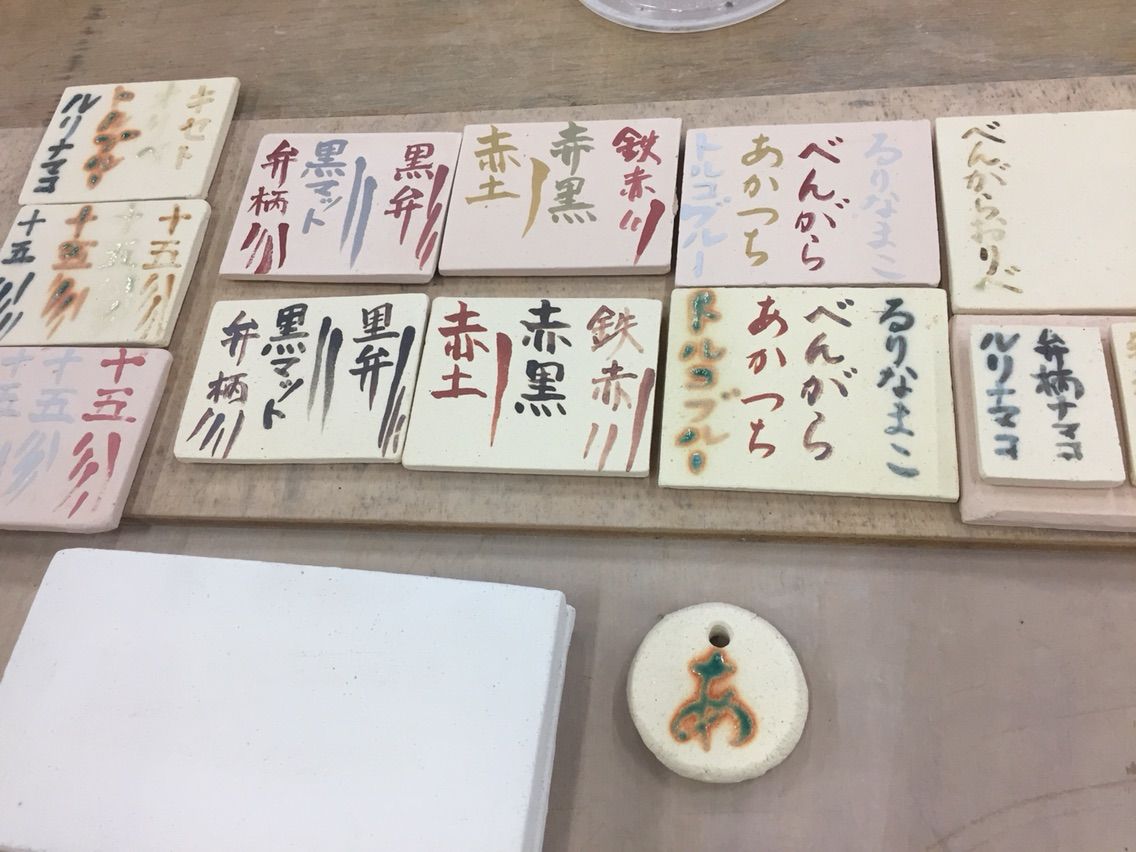 キセト
トルコブルー
ルリナマコ
黒弁
黒マット
弁柄
鉄赤
赤黒
赤土
るりなまこ
べんがら
あかつち
トルコブルー
べんがらおりべ
十五
十五
十五
十五
黒弁
黒マット
弁柄
鉄赤
赤黒
赤土
るりなまこ
べんがら
あかつち
トルコブルー
弁柄ナマコ
ルリナマコ
十五
十五
十五
あ